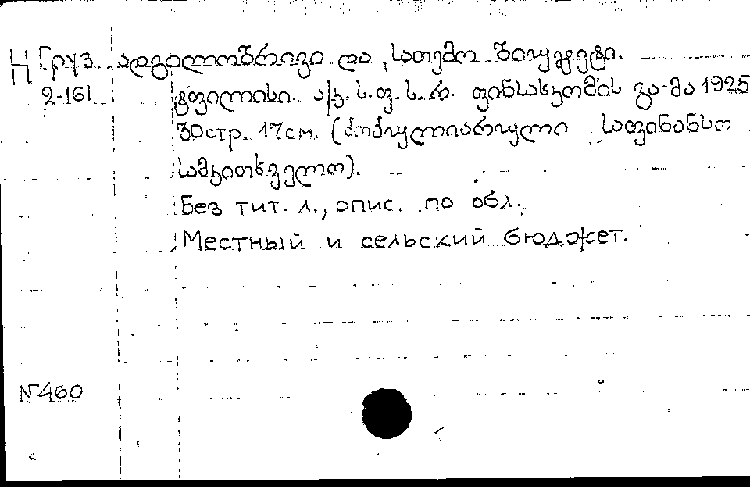 Н Груз. ადგილობრივი და სათემო ბიუჯეტი.
2-161 ტფილისი. ა.ს.ფ.ს.რ. ფინსახკომის გა-მა 1925
30стр. 17см. (პოპულიარული საფინანსო
სამკითხველო).
Без тит. л., опис. по обл.
Местный и сельский бюджет.
N460